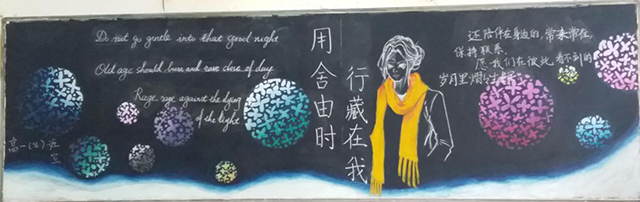 Do not go gentle into that good night
Old age should burn and rave close of day
Rage, rage against the dying
of the light
高一(8)班
宣
用舍由时
行藏在我
还陪伴在身边的,常来常在,
保持联系.
愿我们在彼此看不到的
岁月里熠熠生辉